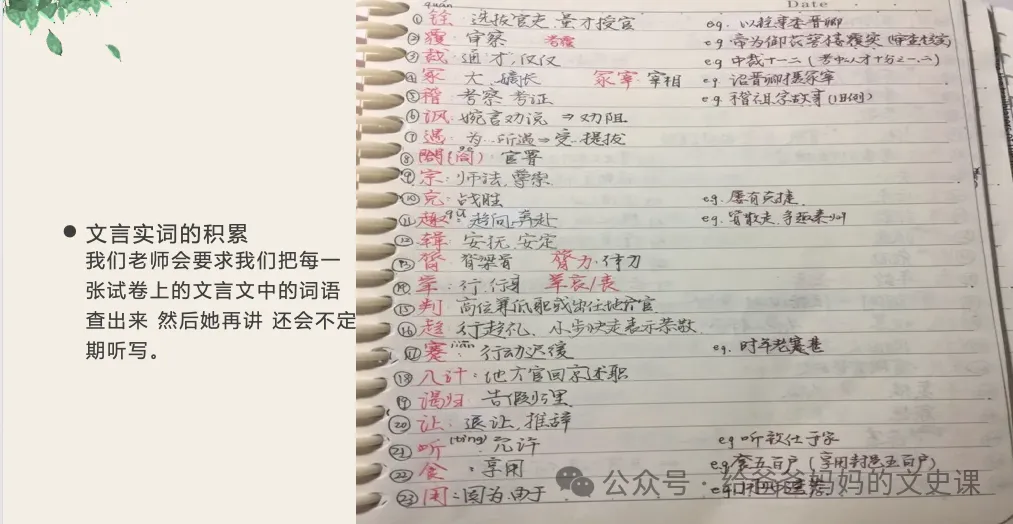 ● 文言实词的积累
我们老师会要求我们把每一
张试卷上的文言文中的词语
查出来 然后她再讲 还会不定
期听写。
Date
quán
① 铨 选拔官吏 量才授官 eg. 以铨事委晋卿
② 覆 审察 考覆 eg 帝为御花萼楼覆实(审查核实)
③ 裁 通"才",仅仅 eg 中裁十一二(考中人才十分之一、二)
④ 冢 大、嫡长 冢宰 宰相 eg 诏晋卿摄冢宰
⑤ 稽 考察 考证 eg 稽祖宗故事(旧例)
⑥ 讽 婉言劝说 ⇒ 劝阻
⑦ 遇 为…所遇⇒受…提拔
⑧ 官署
⑨ 宗 师法,尊崇
⑩ 克 战胜 eg. 屡有克捷
⑪ 趣 qū 趋向,奔赴
⑫ 辑 安抚,安定
⑬ 膂 脊梁骨 膂力 体力
⑭ 举 行,行身 举哀/丧
⑮ 判 高位兼低职或出任地方官
⑯ 趋 行趋礼,小步快走表示恭敬
⑰ 蹇 jiǎn 行动迟缓 eg. 时年老蹇甚
⑱ 入计:地方官回京述职
⑲ 谒归 告假归里
⑳ 让 退让,推辞
㉑ 听 (tìng) 允许 eg 听致仕于家
㉒ 食 :享用 eg 食五百户(享用封邑五百户)
㉓ 用:因为,由于
公众号·给爸爸妈妈的文史课